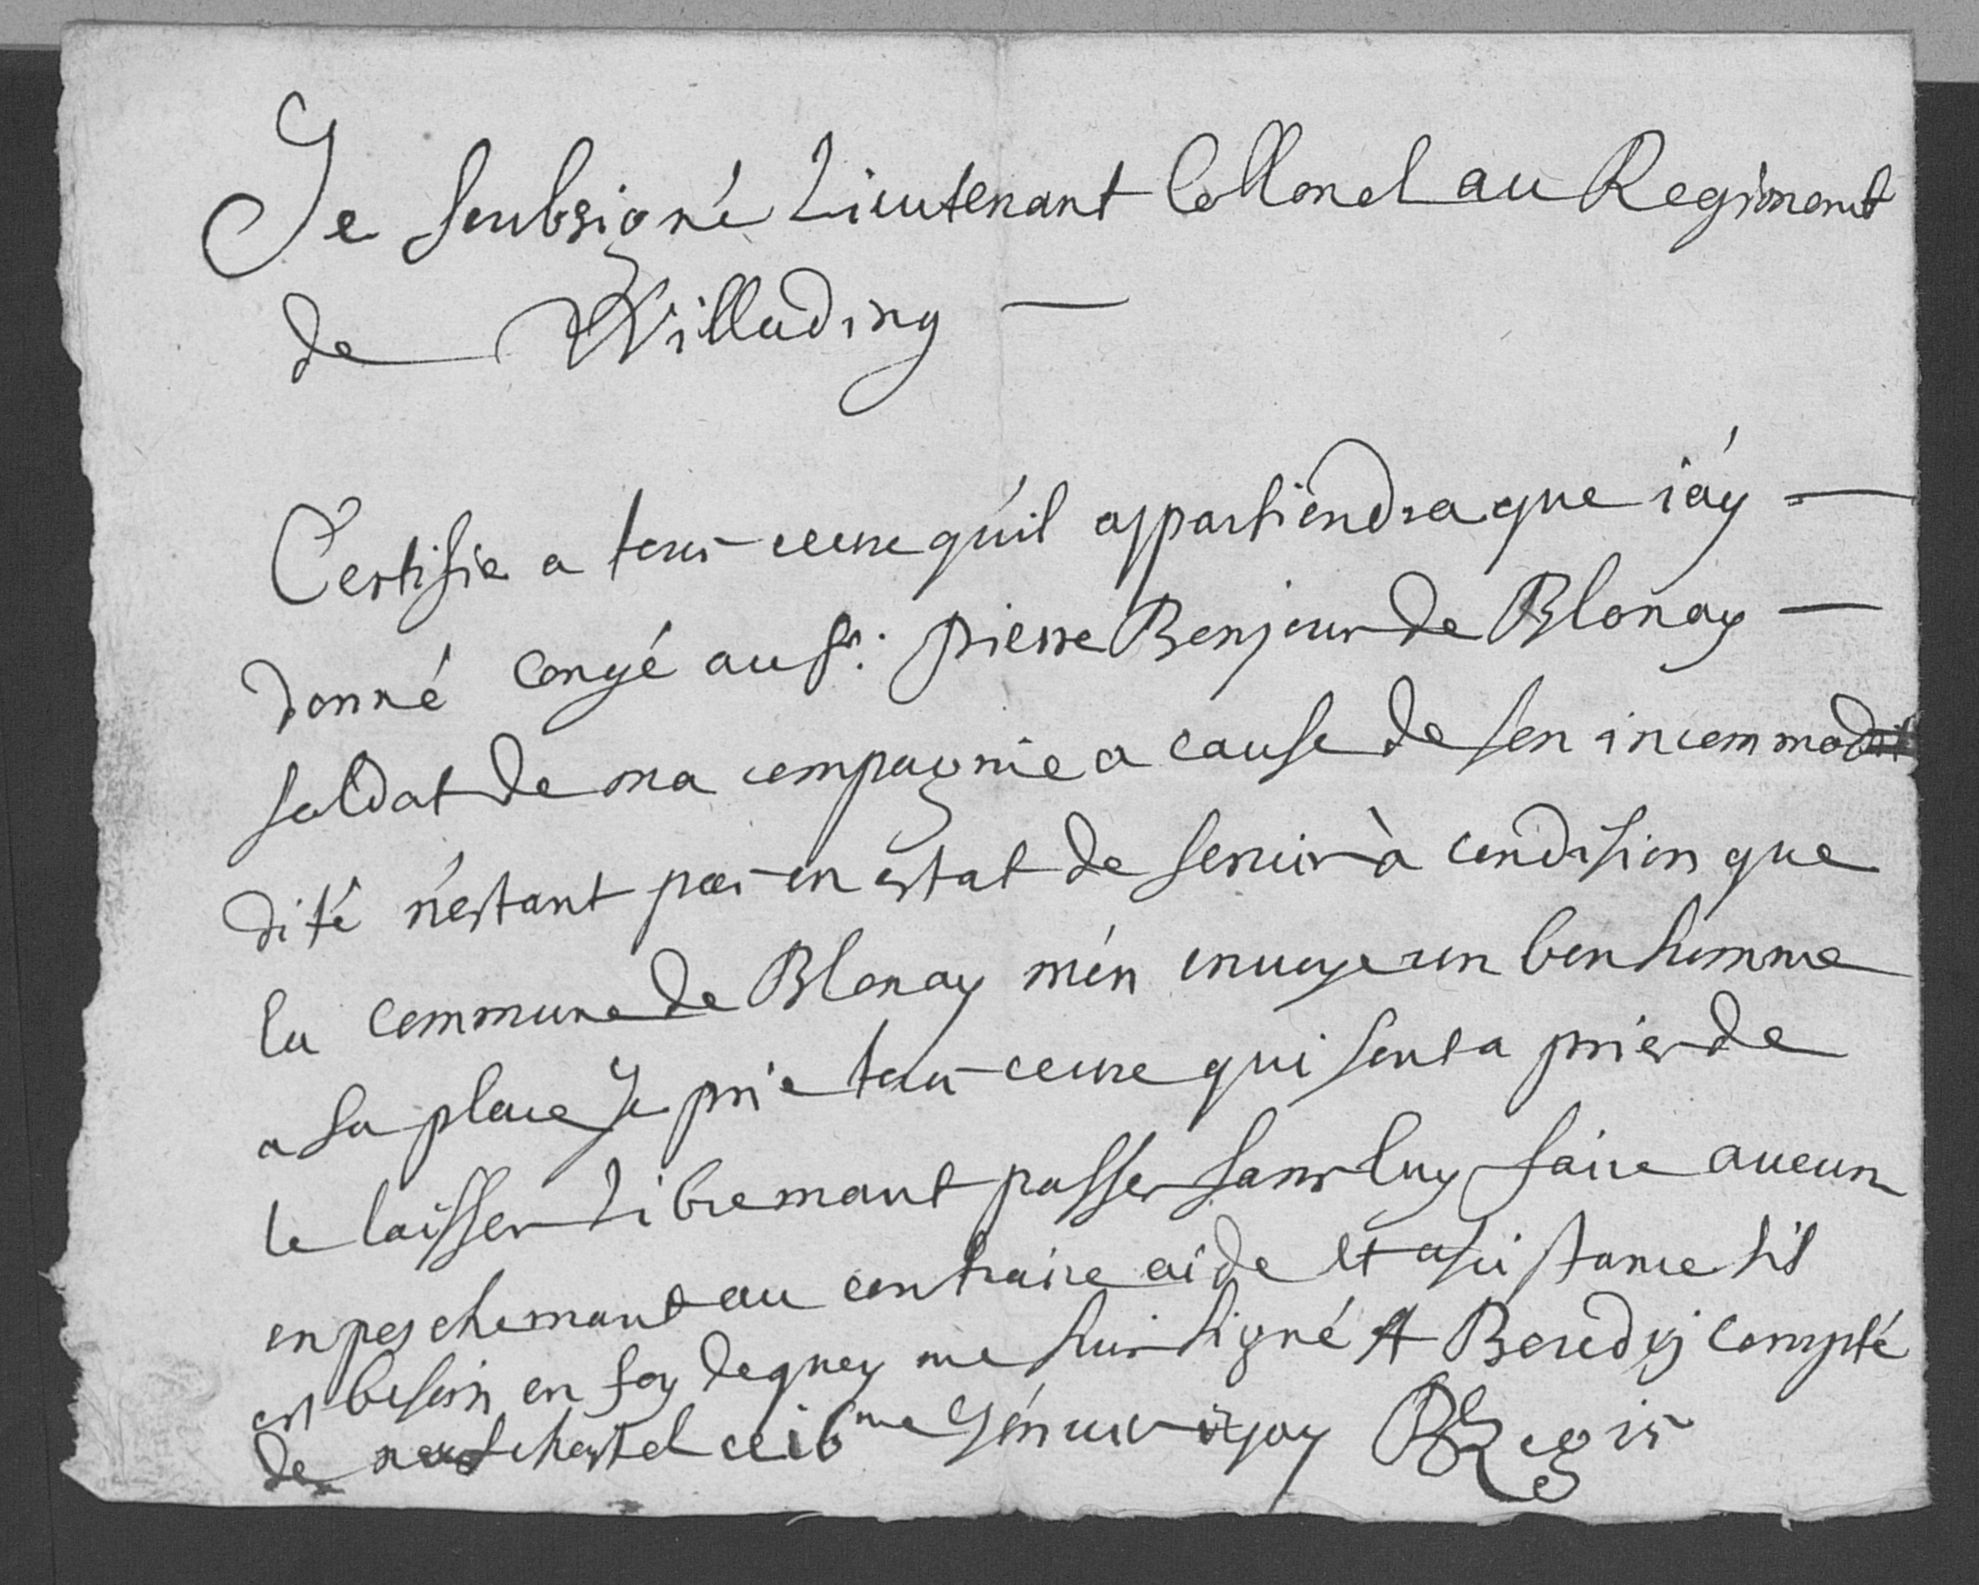 Je soubsigné Lieutenant Collonel au Regimant
de Willading —
Certifie a tous ceux qu'il appartiendra que i'ay —
donné congé au Sr: pierre Bonjour de Blonay —
soldat de ma compagnie a cause de son incommodit
dité n'estant pas en estat de servir à condision que
la commune de Blonay m'en envoye un bon homme
a sa place Je prie tous ceux qui sont a prier de
le laisser Libremant passer sans luy faire aucun
enpeschemant au contraire aide et asistance s'il
en besoin en foy de quoy me suis signé A compté
de neufchastel ce 16me 1709 Regis